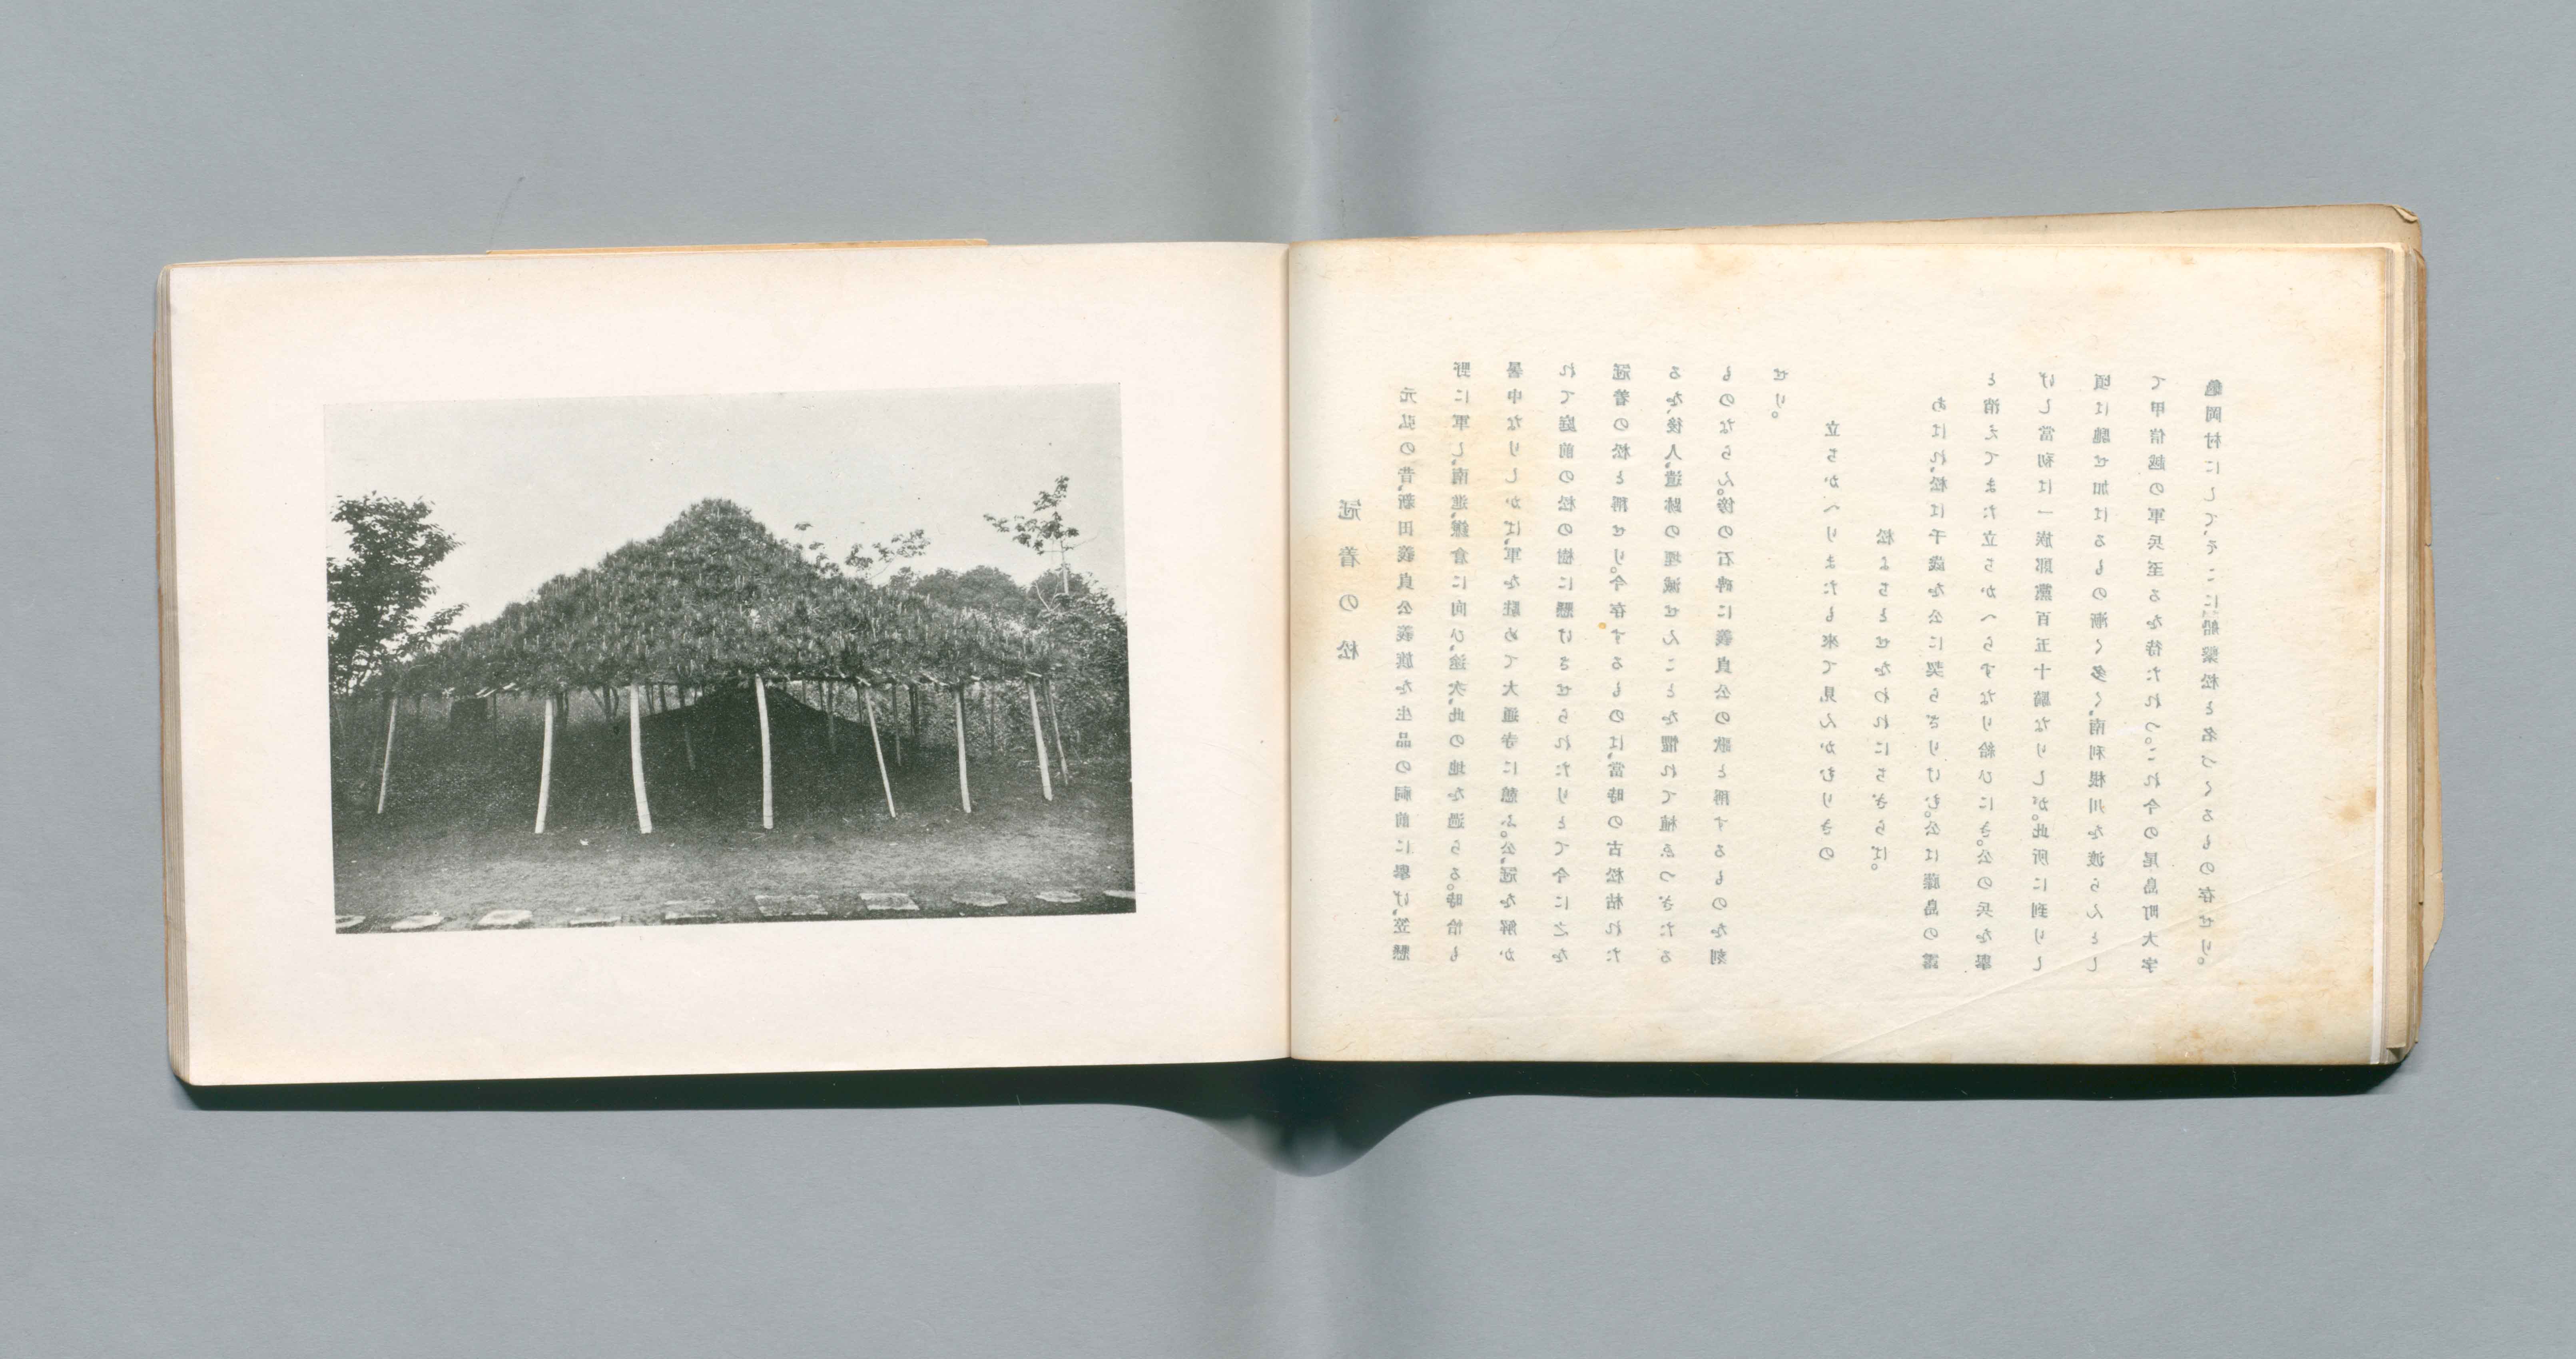 冠着の松
元弘の昔、新田義貞公義旗を生品の祠前に擧げ、笠懸
野に軍し、南進、鎌倉に向ひ、途次、此の地を過らる。時恰も
暑中なりしかば、軍を駐めて大通寺に憩ふ。公、冠を解か
れて庭前の松の樹に懸けさせられたりとて今に之を
冠着の松と稱せり。今存するものは、當時の古松枯れた
るを、後人、遺跡の堙滅せんことを懼れて植ゑつぎたる
ものならん。傍の石碑に義貞公の歌と稱するものを刻
せり。
立ちかへりまたも來て見んかむりきの
松よちとせをわれにちぎらば。
あはれ、松は千歳を公に契らざりけむ。公は藤島の露
と消えてまた立ちかへらずなり給ひにき。公の兵を擧
げし當初は一族郎黨百五十騎なりしが。此所に到りし
頃は馳せ加はるもの漸く多く、南利根川を渡らんとし
て甲信越の軍兵至るを待たれつ。これ今の尾島町大字
龜岡村にして、そこに船繋松と名づくるもの存せり。